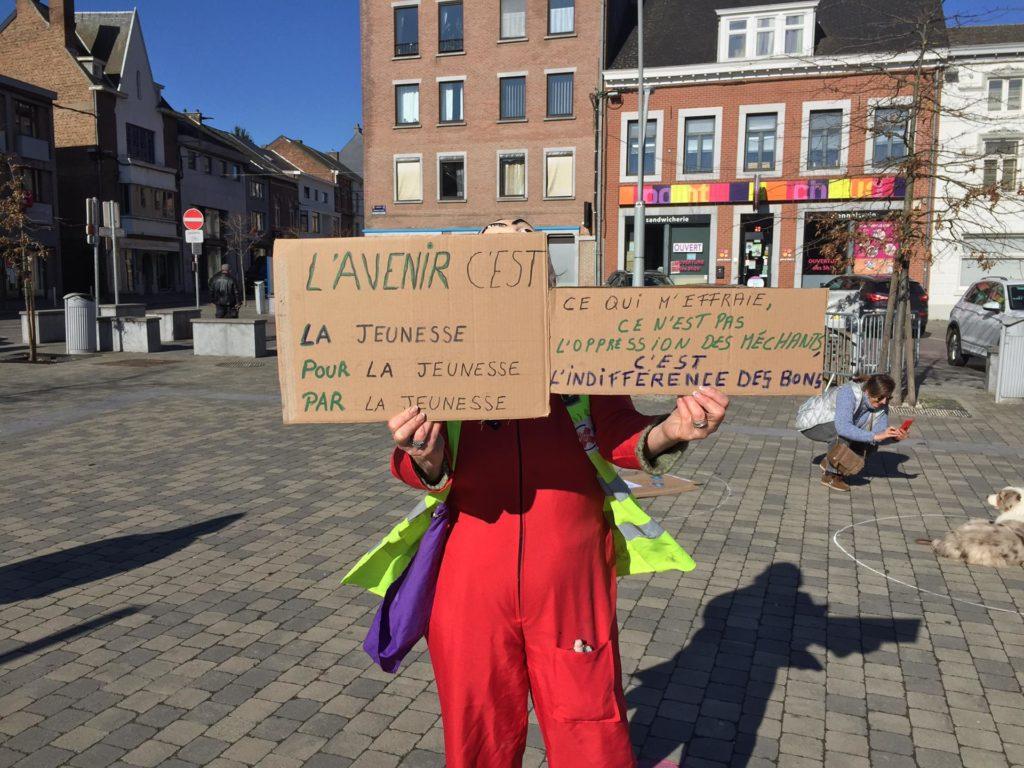 L'AVENIR C'EST
LA JEUNESSE
POUR LA JEUNESSE
PAR LA JEUNESSE
CE QUI M'EFFRAIE,
CE N'EST PAS
L'OPPRESSION DES MÉCHANTS,
C'EST
L'INDIFFÉRENCE DES BONS
point chaud
sandwicherie
OUVERT